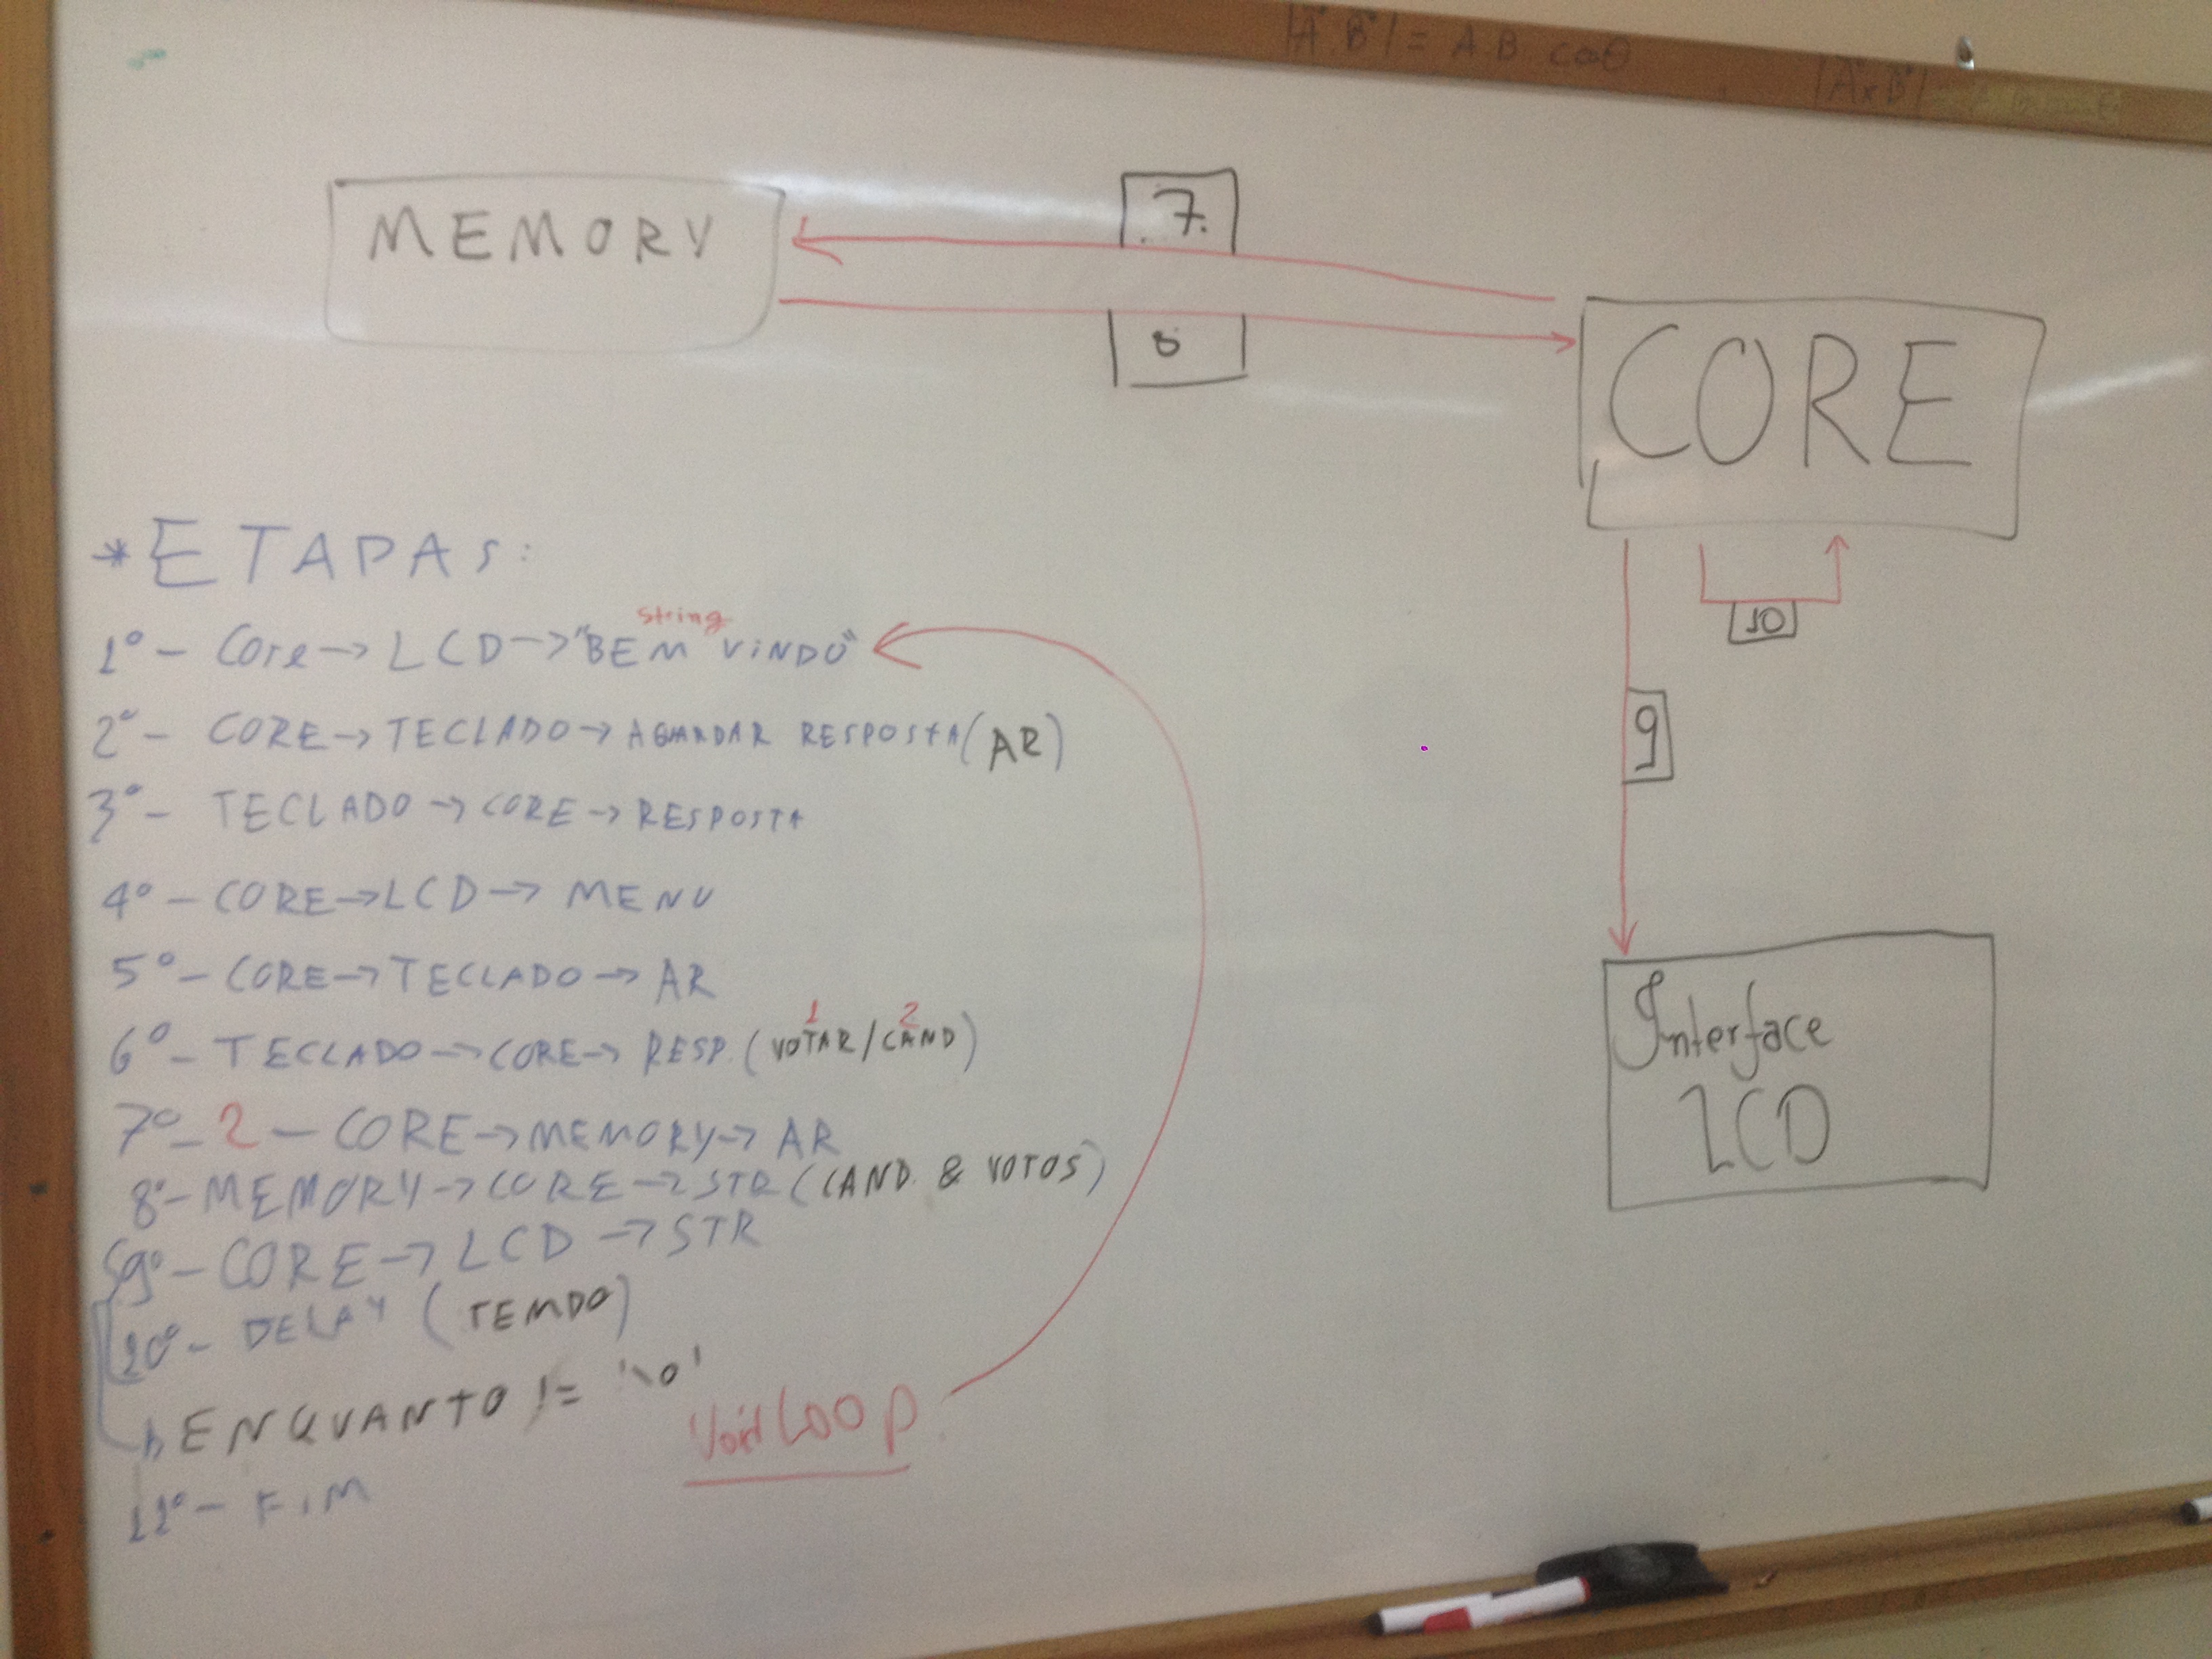 |A·B| = A B cosθ
|A×B|
MEMORY
7
8
CORE
10
9
Interface
LCD
* ETAPAS:
string
1º - Core → LCD → "BEM VINDO"
2º - CORE → TECLADO → AGUARDAR RESPOSTA (AR)
3º - TECLADO → CORE → RESPOSTA
4º - CORE → LCD → MENU
5º - CORE → TECLADO → AR
1 2
6º - TECLADO → CORE → RESP. (VOTAR/CAND)
7º - 2 - CORE → MEMORY → AR
8º - MEMORY → CORE → STR (CAND. & VOTOS)
9º - CORE → LCD → STR
10º - DELAY (TEMPO)
ENQUANTO != '\0'
Void Loop
11º - FIM